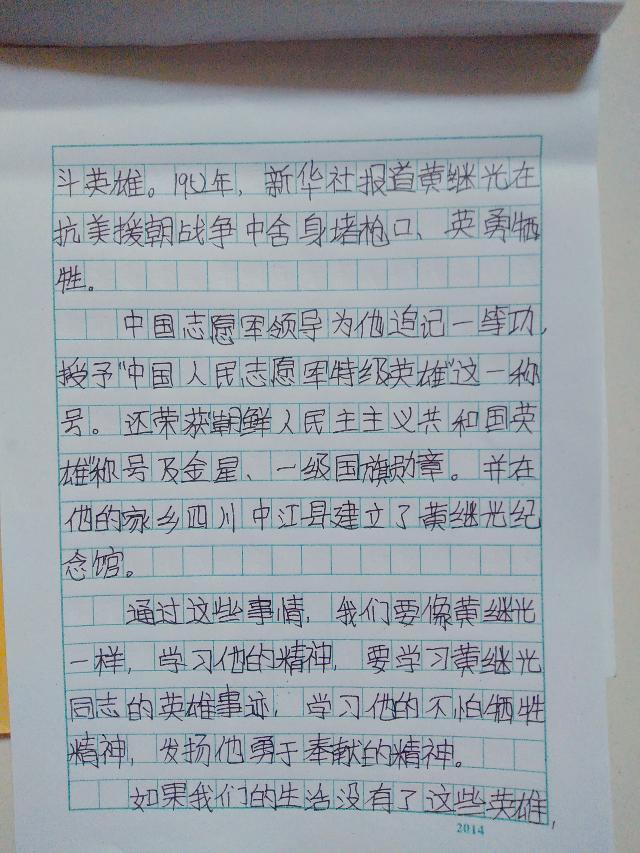 斗英雄。1952年，新华社报道黄继光在
抗美援朝战争中舍身堵枪口、英勇牺
牲。
中国志愿军领导为他追记一等功，
授予"中国人民志愿军特级英雄"这一称
号。还荣获"朝鲜人民主主义共和国英
雄"称号及金星、一级国旗勋章。并在
他的家乡四川中江县建立了黄继光纪
念馆。
通过这些事情，我们要像黄继光
一样，学习他的精神，要学习黄继光
同志的英雄事迹，学习他的不怕牺牲
精神，发扬他勇于奉献的精神。
如果我们的生活没有了这些英雄，
2014